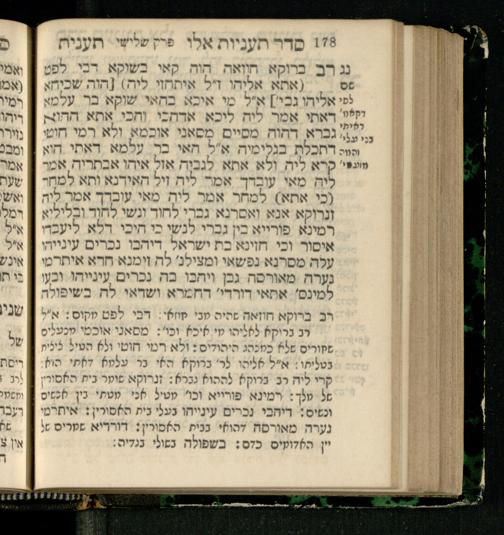 178 סדר תעניות אלו פרק שלישי תענית
נג רב ברוקא חוזאה הוה קאי בשוקא דבי לפט
שם (אתא אליהו ז"ל איתחזי ליה) [הוה שכיחא
לפי אליהו גביה] א"ל מי איכא בהאי שוקא בר עלמא
דאתי אמר ליה ליכא אדהכי והכי אתא ההוא
גברא דהוה מסיים מסאני אוכמא ולא רמי חוטי
דתכלת בגלימיה א"ל האי בר עלמא דאתי הוא
קרא ליה ולא אתא לגביה אזל איהו אבתריה אמר
ליה מאי עובדך אמר ליה זיל האידנא ותא למחר
(כי אתא) למחר אמר ליה מאי עובדך אמר ליה
זנדוקא אנא ואסרנא גברי לחוד ונשי לחוד ובליליא
רמינא פורייא בין גברי לנשי כי היכי דלא ליעבדו
איסור וכי חזינא בת ישראל דיהבו נכרים עינייהו
עלה מסרנא נפשאי ומצילנ' לה זימנא חדא איתרמי
נערה מאורסה גבן ויהבו בה נכרים עינייהו ובעו
למינס' אתאי דורדיי דחמרא ושדאי לה בשיפולה
רב ברוקא חוזאה שהיה מבי חוזאי: דבי לפט מקום: א"ל
רב ברוקא לאליהו מי איכא וכו': מסאני אוכמי מנעלים
שחורים שלא כמנהג היהודים: ולא רמי חוטי ולא הטיל ציצית
בטליתו: א"ל אליהו לר' ברוקא האי בר עלמא דאתי הוא:
קרי ליה רב ברוקא לההוא גברא: זנדוקא שומר בית האסורין
של מלך: רמינא פורייא וכו' מטיל אני מטתי בין אנשים
ונשים: דיהבי נכרים עינייהו בעלי בית האסורין: איתרמי
נערה מאורסה דהואי בבית האסורין: דורדיא שמרים של
יין האדומים כדם: בשפולה בשולי בגדיה: